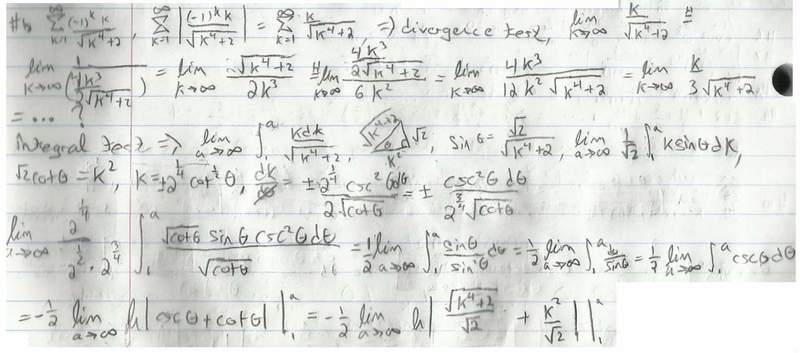 #6 \sum_{k=1}^{\infty} \frac{(-1)^k k}{\sqrt{k^4+2}}, \sum_{k=1}^{\infty} \left| \frac{(-1)^k k}{\sqrt{k^4+2}} \right| = \sum_{k=1}^{\infty} \frac{k}{\sqrt{k^4+2}} => divergence test, \lim_{k\to\infty} \frac{k}{\sqrt{k^4+2}} \overset{H}{=}
\lim_{k\to\infty} \frac{1}{\left(\frac{4k^3}{2\sqrt{k^4+2}}\right)} = \lim_{k\to\infty} \frac{\sqrt{k^4+2}}{2k^3} \overset{H}{=} \lim_{k\to\infty} \frac{\frac{4k^3}{2\sqrt{k^4+2}}}{6k^2} = \lim_{k\to\infty} \frac{4k^3}{12k^2\sqrt{k^4+2}} = \lim_{k\to\infty} \frac{k}{3\sqrt{k^4+2}}
= ... ?
integral test =>, \lim_{a\to\infty} \int_1^a \frac{k dk}{\sqrt{k^4+2}}, \sqrt{k^4+2} θ \sqrt{2} k^2, sin θ = \frac{\sqrt{2}}{\sqrt{k^4+2}}, \lim_{a\to\infty} \frac{1}{\sqrt{2}} \int_1^a k sin θ dk,
\sqrt{2} cot θ = k^2, k = ±2^{\frac{1}{4}} cot^{\frac{1}{2}} θ, \frac{dk}{dθ} = \frac{±2^{\frac{1}{4}} csc^2 θ dθ}{2\sqrt{cot θ}} = ± \frac{csc^2 θ dθ}{2^{\frac{3}{4}} \sqrt{cot θ}}
\lim_{a\to\infty} \frac{2^{\frac{1}{4}}}{2^{\frac{1}{2}} \cdot 2^{\frac{3}{4}}} \int_1^a \frac{\sqrt{cot θ} sin θ csc^2 θ dθ}{\sqrt{cot θ}} = \frac{1}{2} \lim_{a\to\infty} \int_1^a \frac{sin θ}{sin^2 θ} dθ = \frac{1}{2} \lim_{a\to\infty} \int_1^a \frac{dθ}{sin θ} = \frac{1}{2} \lim_{a\to\infty} \int_1^a csc θ dθ
= -\frac{1}{2} \lim_{a\to\infty} ln | csc θ + cot θ | |_1^a = -\frac{1}{2} \lim_{a\to\infty} ln | \frac{\sqrt{k^4+2}}{\sqrt{2}} + \frac{k^2}{\sqrt{2}} | |_1^a